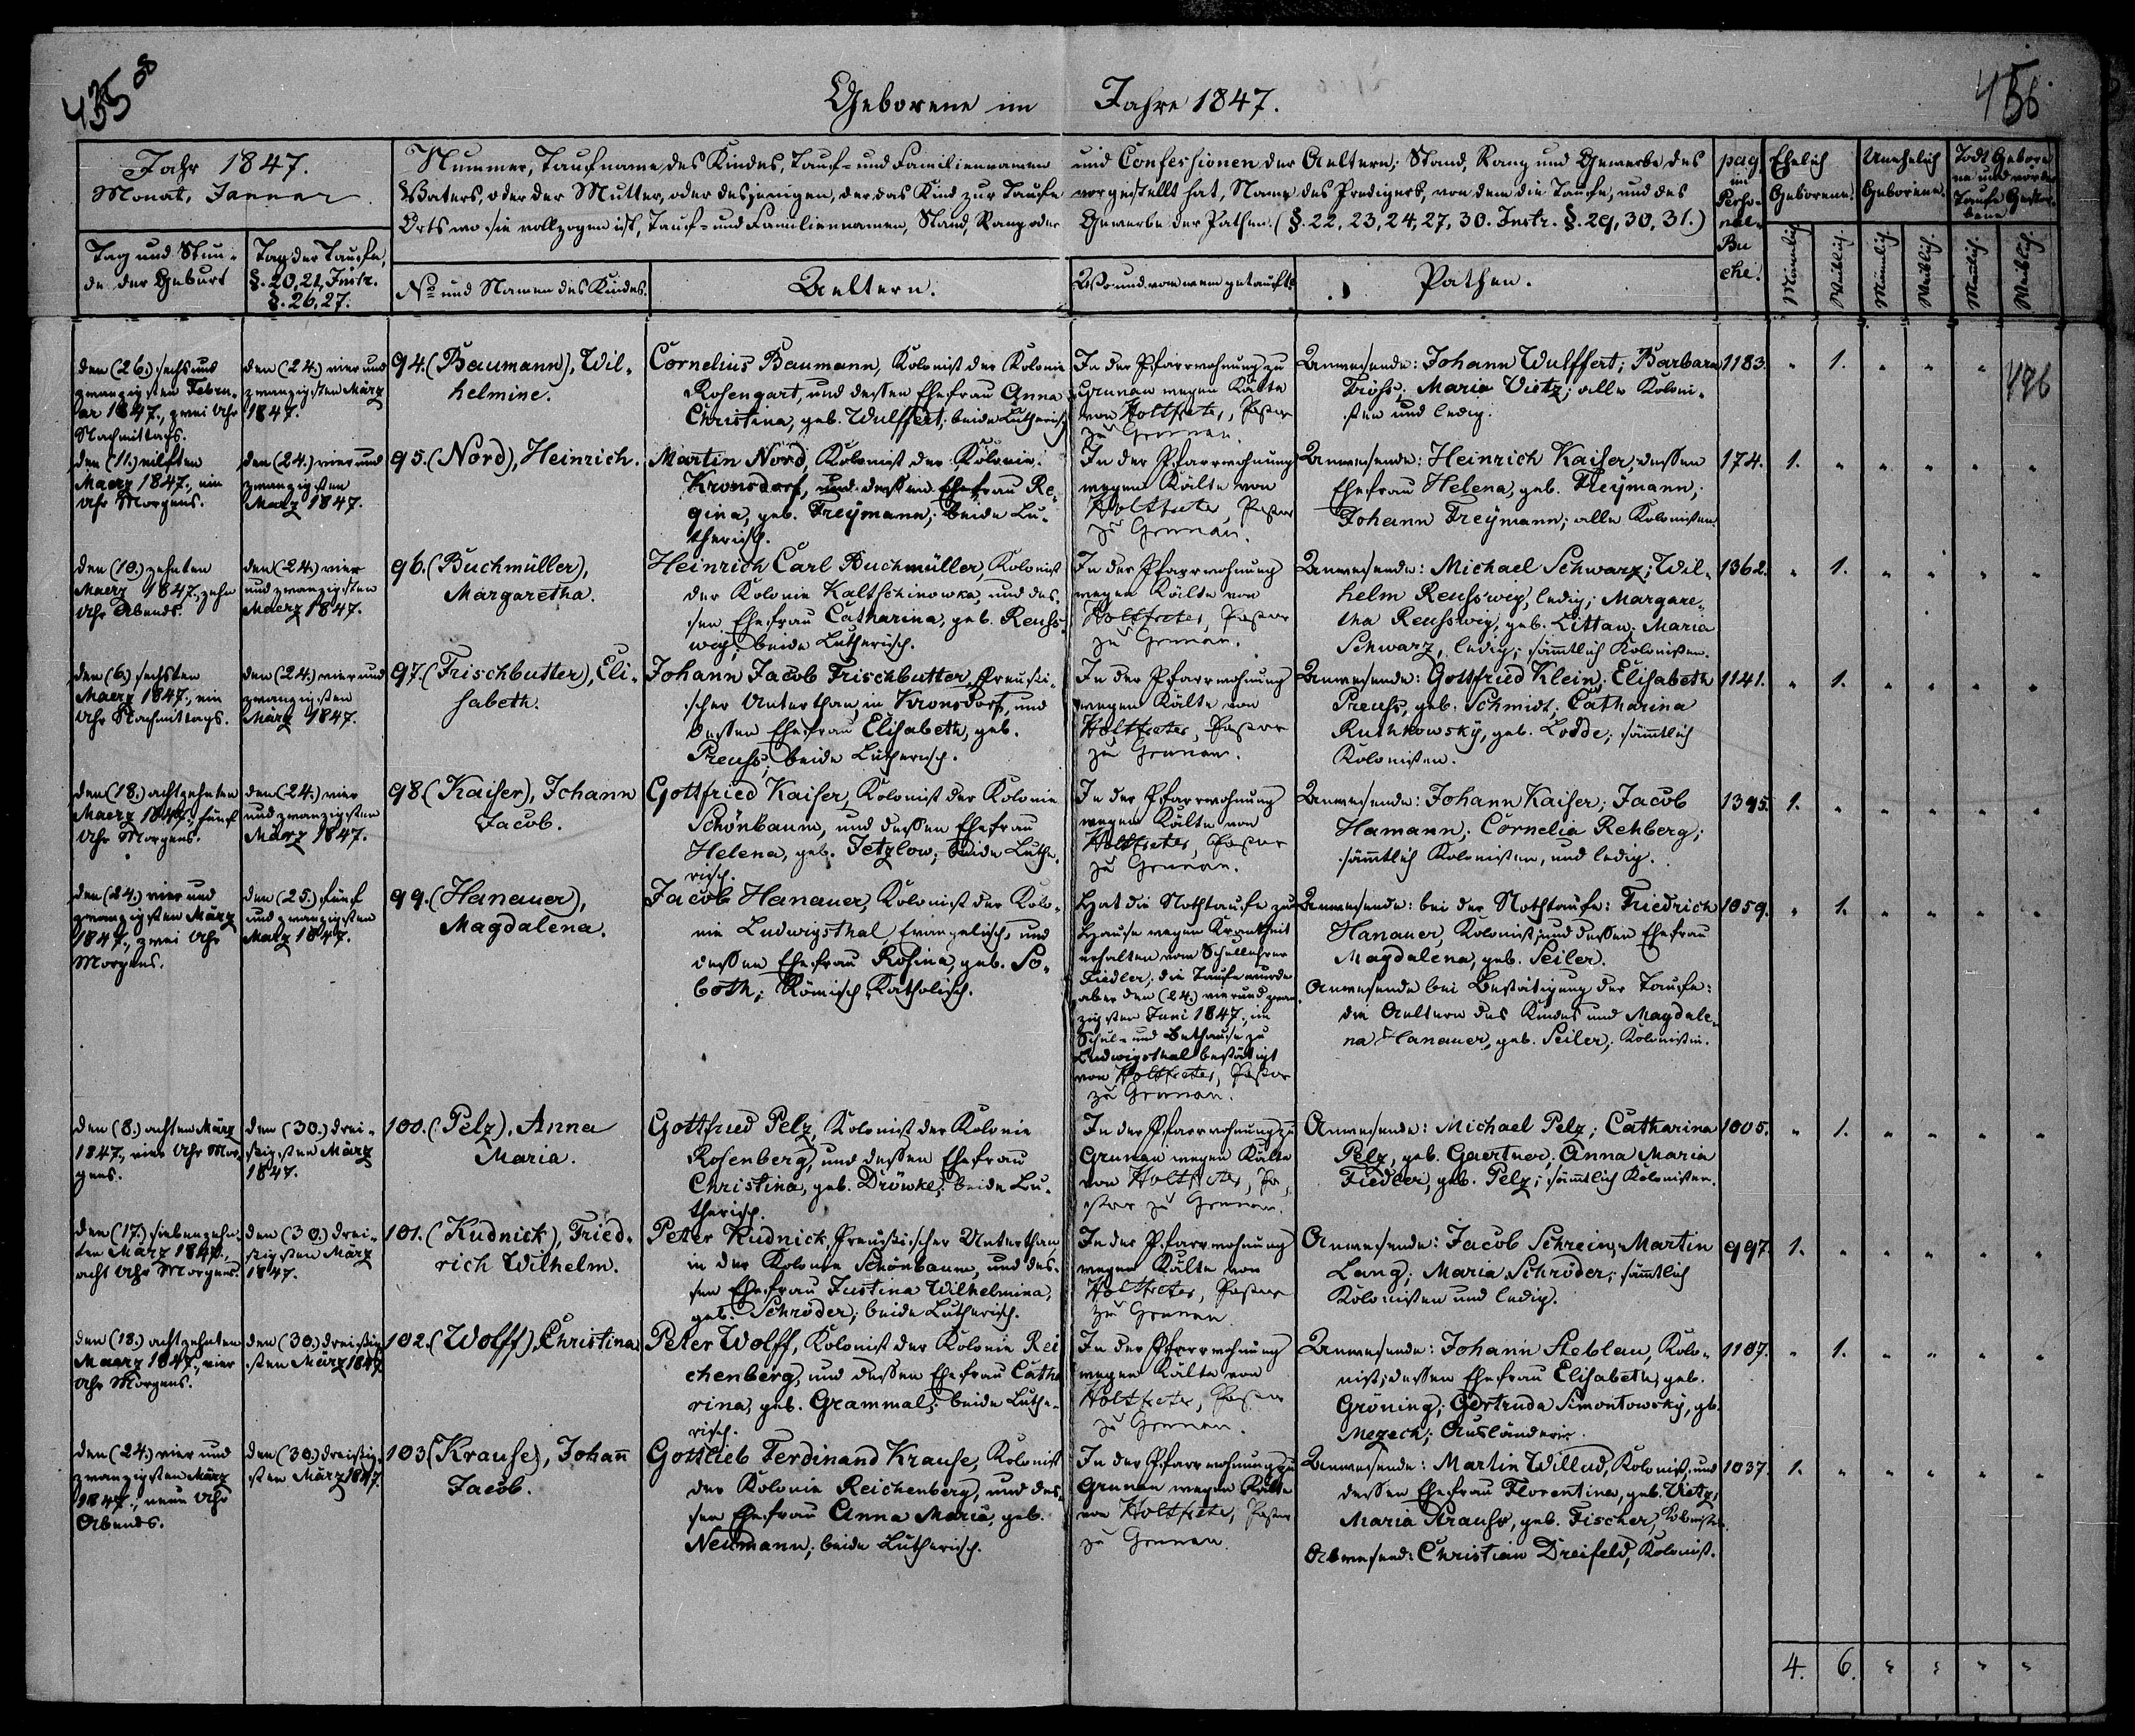 435
456
Geborene im Jahre 1847.
Jahr 1847.
Monat, Januar
Tag und Stun-
de der Geburt
Tag der Taufe,
§. 20, 21, Instr.
§. 26, 27.
Nummer, Taufname des Kindes, Tauf- und Familiennamen und Confessionen der Aeltern; Stand, Rang und Gewerbe des
Vaters, oder der Mutter, oder desjenigen, der das Kind zur Taufe vorgestellt hat, Name des Predigers, von dem die Taufe, und des
Orts wo sie vollzogen ist, Tauf- und Familiennamen, Stand, Rang oder Gewerbe der Pathen. (§. 22, 23, 24, 27, 30. Instr. §. 29, 30, 31.)
No und Namen des Kindes.
Aeltern.
Wo und von wem getauft?
Pathen.
pag.
im
Perso-
nal-
Bu
che.
Ehelich
Geborene.
Unehelich
Geborene.
Todt Gebore
ne und vor der
Taufe Gestor-
bene
Männlich.
Weiblich.
Männlich.
Weiblich.
Männlich.
Weiblich.
den (26.) sechs und
zwanzigsten Febru-
ar 1847., zwei Uhr
Nachmittags.
den (24.) vier und
zwanzigsten März
1847.
94. (Baumann), Wil-
helmine.
Cornelius Baumann, Kolonist der Kolonie
Rosengart, und dessen Ehefrau Anna
Christina, geb. Wulffert; beide Lutherisch.
In der Pfarrwohnung zu
Grunau wegen Kälte
von Holtfreter, Pastor
zu Grunau.
Anwesende: Johann Wulffert; Barbara
Fröhs; Maria Vietz; alle Koloni-
sten und ledig.
1183.
" 1. " " "
496
den (11.) eilften
Maerz 1847., ein
Uhr Morgens.
den (24.) vier und
zwanzigsten
März 1847.
95. (Nord), Heinrich.
Martin Nord, Kolonist der Kolonie
Kronsdorf, und dessen Ehefrau Re-
gina, geb. Freymann; beide Lu-
therisch.
In der Pfarrwohnung
wegen Kälte von
Holtfreter, Pastor
zu Grunau.
Anwesende: Heinrich Kaiser, dessen
Ehefrau Helena, geb. Freymann;
Johann Freymann; alle Kolonisten.
174.
1. " " " " "
den (10.) zehnten
Maerz 1847., zehn
Uhr Abends.
den (24.) vier
und zwanzigsten
Maerz 1847.
96. (Buchmüller),
Margaretha.
Heinrich Carl Buchmüller, Kolonist
der Kolonie Kaltschinowka, und des-
sen Ehefrau Catharina, geb. Reuss-
wig; beide Lutherisch.
In der Pfarrwohnung
wegen Kälte von
Holtfreter, Pastor
zu Grunau.
Anwesende: Michael Schwarz; Wil-
helm Reusswig, ledig; Margare-
tha Reusswig, geb. Littau; Maria
Schwarz, ledig; sämtlich Kolonisten.
1362.
" 1. " " " "
den (6.) sechsten
Maerz 1847., ein
Uhr Nachmittags.
den (24.) vier und
zwanzigsten
März 1847.
97. (Frischbutter), Eli-
sabeth.
Johann Jacob Frischbutter, Preussi-
scher Unterthan, in Kronsdorf, und
dessen Ehefrau Elisabeth, geb.
Preuss; beide Lutherisch.
In der Pfarrwohnung
wegen Kälte von
Holtfreter, Pastor
zu Grunau.
Anwesende: Gottfried Klein; Elisabeth
Preuss, geb. Schmidt; Catharina
Ruthkowsky, geb. Lodde; sämtlich
Kolonisten.
1141.
" 1. " " " "
den (18.) achtzehnten
Maerz 1847., fünf
Uhr Morgens.
den (24.) vier
und zwanzigsten
März 1847.
98. (Kaiser), Johann
Jacob.
Gottfried Kaiser, Kolonist der Kolonie
Schönbaum, und dessen Ehefrau
Helena, geb. Jetzlow; beide Luthe-
risch.
In der Pfarrwohnung
wegen Kälte von
Holtfreter, Pastor
zu Grunau.
Anwesende: Johann Kaiser; Jacob
Hamann; Cornelia Rehberg;
sämtlich Kolonisten, und ledig.
1395.
1. " " " " "
den (24.) vier und
zwanzigsten März
1847., zwei Uhr
Morgens.
den (25.) fünf
und zwanzigsten
März 1847.
99. (Hanauer),
Magdalena.
Jacob Hanauer, Kolonist der Kolo-
nie Ludwigsthal Evangelisch, und
dessen Ehefrau Rosina, geb. So-
both; Römisch-Katholisch.
Hat die Nothtaufe zu
Hause wegen Krankheit
erhalten vom Schullehrer
Fiedler; die Taufe wurde
aber den (24.) vierund zwan-
zigsten Juni 1847., im
Schul- und Bethause zu
Ludwigsthal bestätigt
von Holtfreter, Pastor
zu Grunau.
Anwesende: bei der Nothtaufe: Friedrich
Hanauer, Kolonist, und dessen Ehefrau
Magdalena, geb. Seiler.
Anwesende bei Bestätigung der Taufe:
die Aeltern des Kindes und Magdale-
na Hanauer, geb. Seiler; Kolonistin.
1059.
" 1. " " " "
den (8.) achten März
1847., vier Uhr Mor-
gens.
den (30.) drei-
ssigsten März
1847.
100. (Pelz), Anna
Maria.
Gottfried Pelz, Kolonist der Kolonie
Rosenberg, und dessen Ehefrau
Christina, geb. Dröwke; beide Lu-
therisch.
In der Pfarrwohnung zu
Grunau wegen Kälte
von Holtfreter, Pa-
stor zu Grunau.
Anwesende: Michael Pelz; Catharina
Pelz, geb. Gaertner; Anna Maria
Fiedler, geb. Pelz; sämtlich Kolonisten.
1005.
" 1. " " " "
den (17.) siebenzehn-
ten März 1847.,
acht Uhr Morgens.
den (30.) drei-
ssigsten März
1847.
101. (Kudnick), Fried-
rich Wilhelm.
Peter Kudnick, Preussischer Unterthan,
in der Kolonie Schönbaum, und des-
sen Ehefrau Justina Wilhelmina,
geb. Schröder; beide Lutherisch.
In der Pfarrwohnung
wegen Kälte von
Holtfreter, Pastor
zu Grunau.
Anwesende: Jacob Schrein; Martin
Lang; Maria Schröder; sämtlich
Kolonisten und ledig.
997.
1. " " " " "
den (18.) achtzehnten
Maerz 1847., vier
Uhr Morgens.
den (30.) dreissig-
sten März 1847.
102. (Wolff), Christina
Peter Wolff, Kolonist der Kolonie Rei
chenberg, und dessen Ehefrau Catha
rina, geb. Grammal; beide Luthe-
risch.
In der Pfarrwohnung
wegen Kälte von
Holtfreter, Pastor
zu Grunau.
Anwesende: Johann Steblau, Kolo-
nist; dessen Ehefrau Elisabeth, geb.
Gröning; Gertruda Simontowsky, gb.
Mezech; Ausländerin.
1107.
" 1. " " " "
den (24.) vier und
zwanzigsten März
1847., neun Uhr
Abends.
den (30.) dreissig-
sten März 1847.
103. (Krause), Johann
Jacob.
Gottlieb Ferdinand Krause, Kolonist
der Kolonie Reichenberg, und des-
sen Ehefrau Anna Maria, geb.
Neumann; beide Lutherisch.
In der Pfarrwohnung zu
Grunau wegen Kälte
von Holtfreter, Pastor
zu Grunau.
Anwesende: Martin Willud, Kolonist, und
dessen Ehefrau Florentina, geb. Vietz;
Maria Strauss, geb. Fischer, Kolonisten.
Abwesend: Christian Dreifeld, Kolonist.
1037.
1. " " " " "
4. 6. " " " "